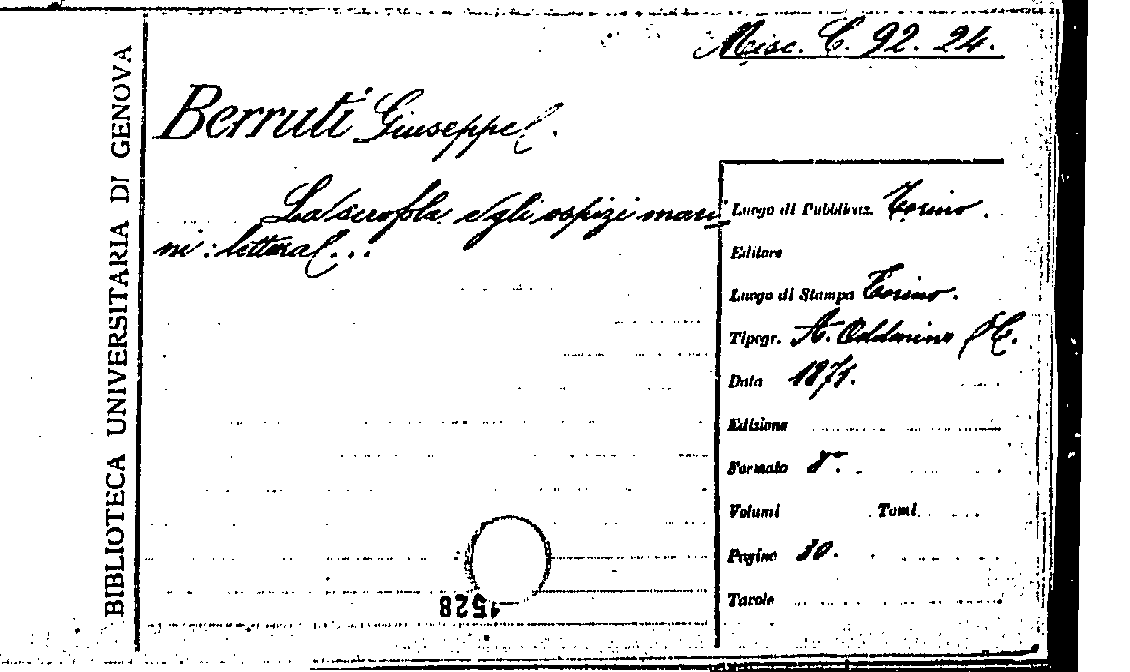 Misc. C. 92. 24.
BIBLIOTECA UNIVERSITARIA DI GENOVA
Berruti Giuseppe.
La scrofola e gli ospizi mari-
ni: lettera...
Luogo di Pubblicaz. Torino.
Editore
Luogo di Stampa Torino.
Tipogr. A. Oddenino
Data 1871.
Edizione
Formato 8°.
Volumi Tomi
Pagine 30.
Tavole
1528